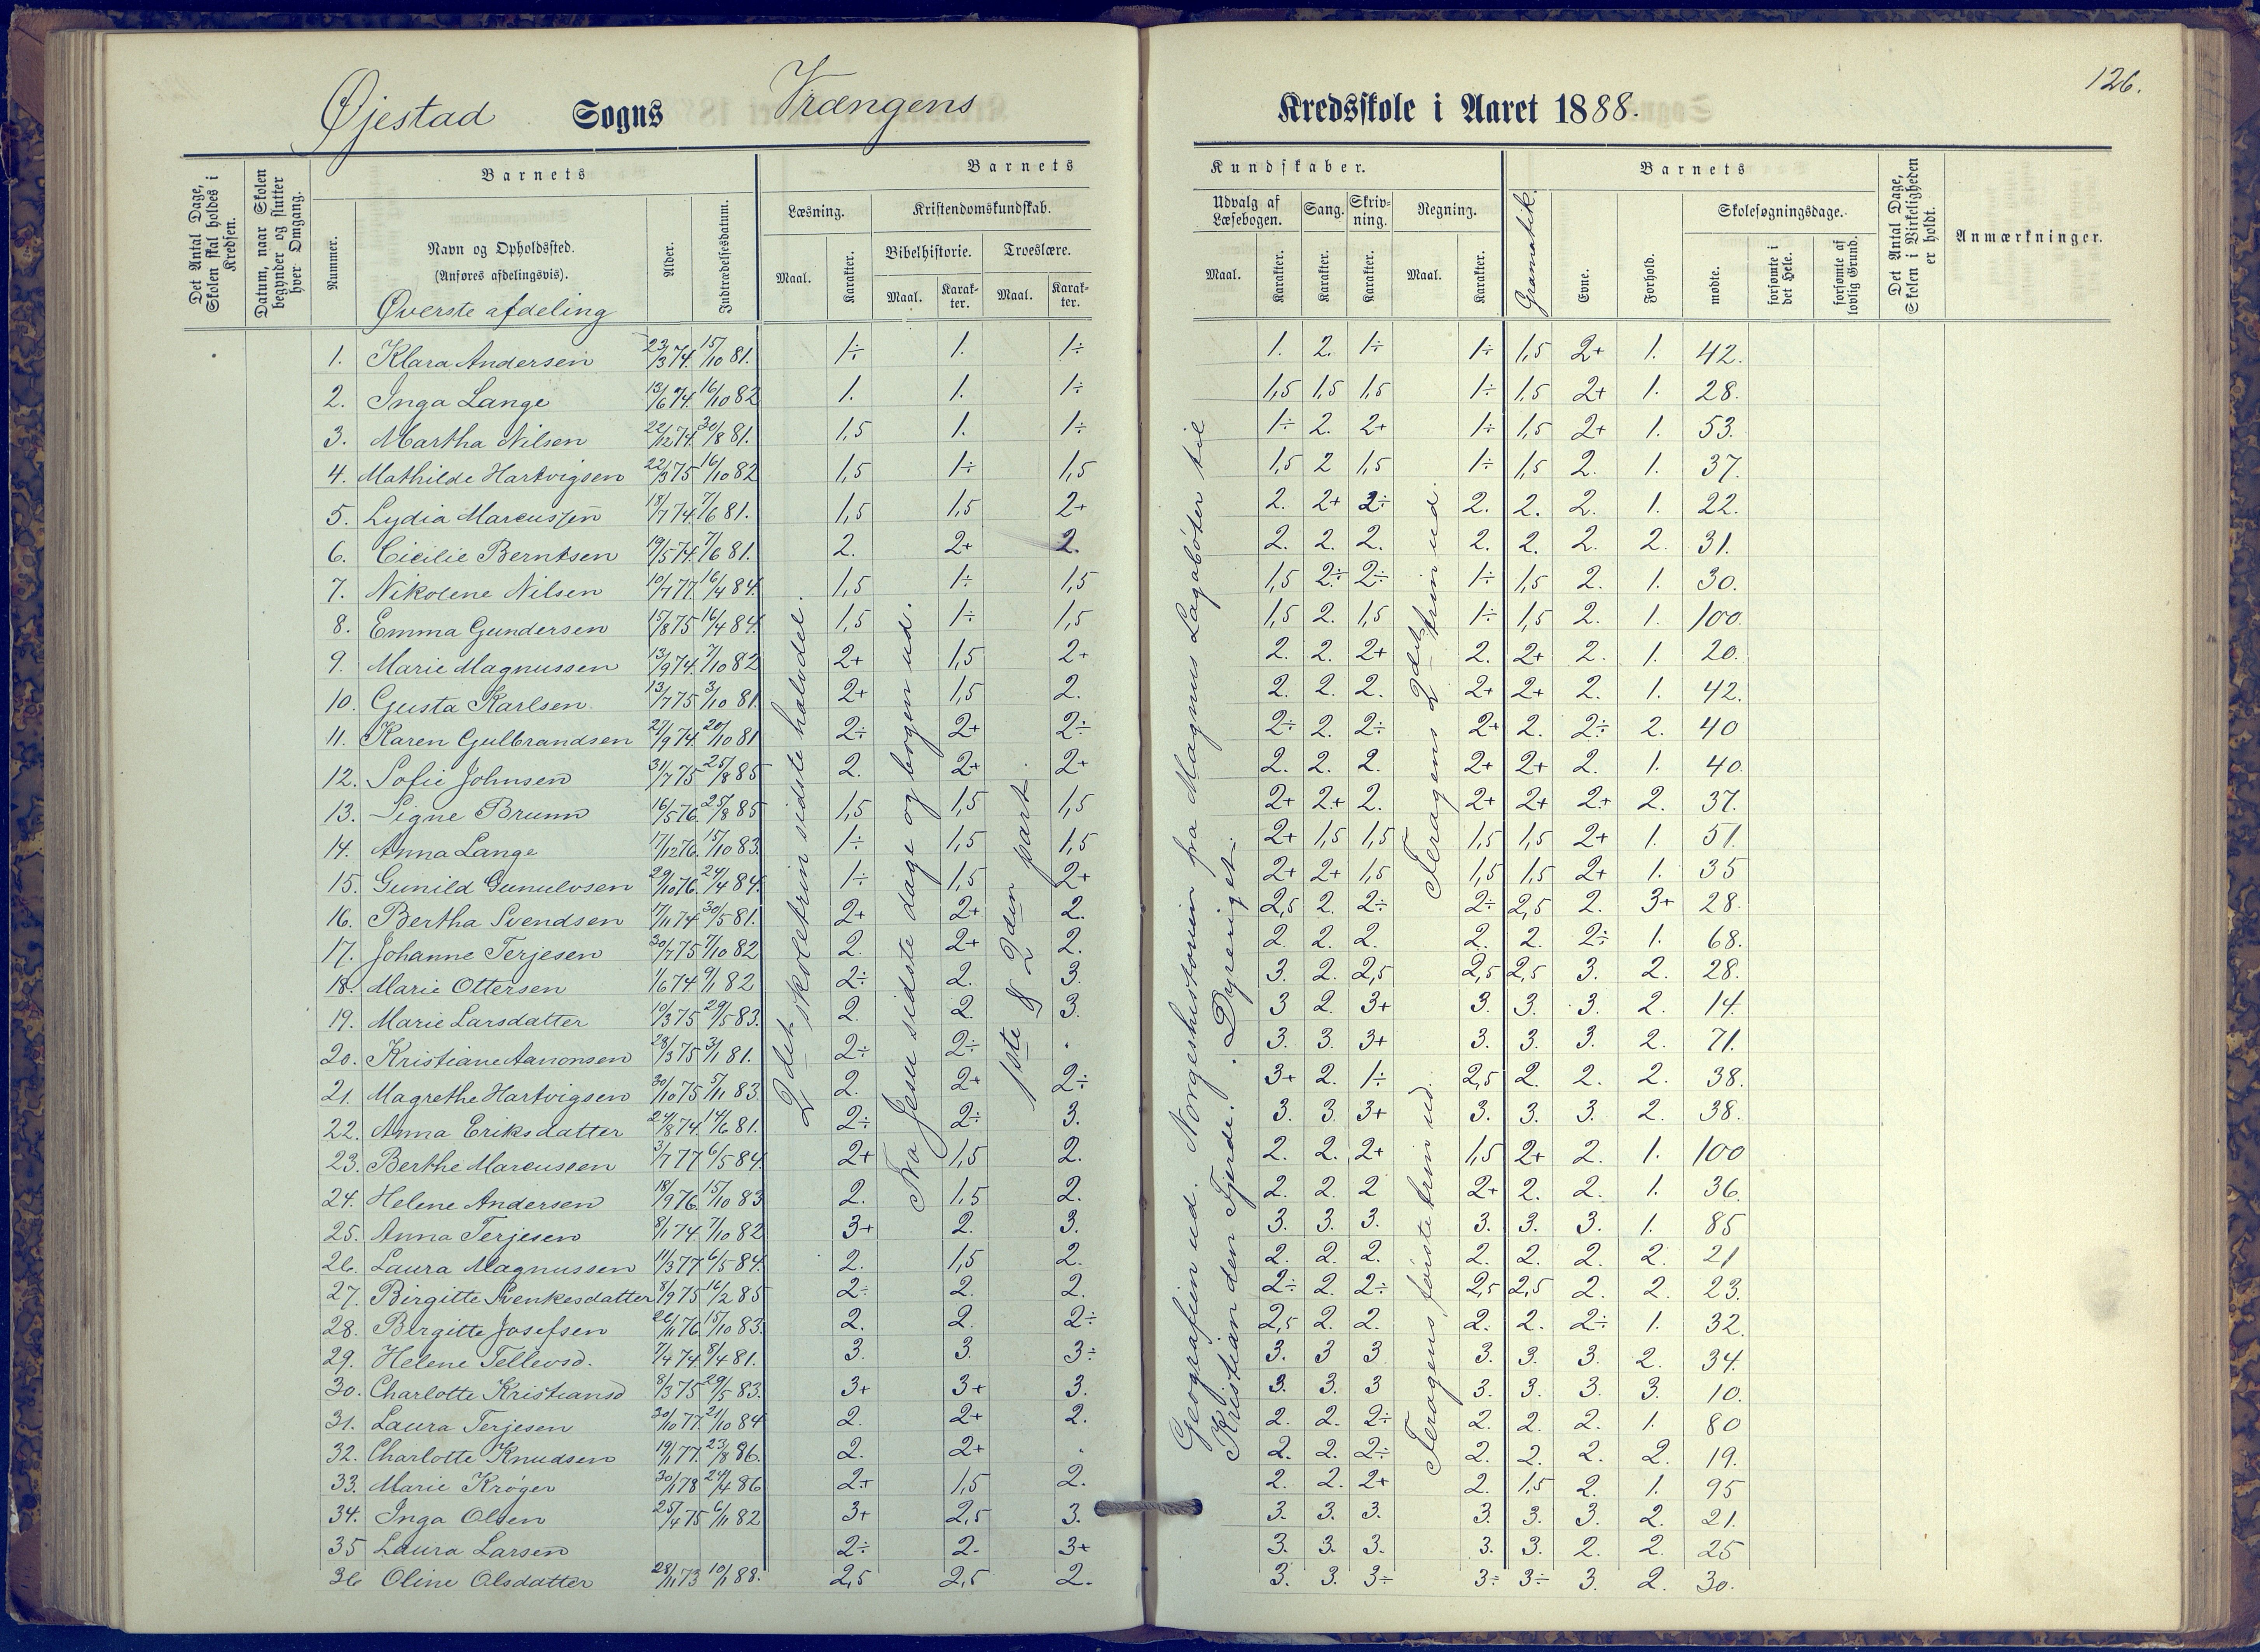 126.
Øjestad Sogns Vrængens Kredsskole i Aaret 1888.
Det Antal Dage, Skolen skal holdes i Kredsen.
Datum, naar Skolen begynder og slutter hver Omgang.
Barnets
Nummer.
Navn og Opholdssted.
(Anføres afdelingsvis).
Øverste afdeling
Alder.
Indtrædelsesdatum.
Barnets
Læsning.
Maal.
Karakter.
Kristendomskundskab.
Bibelhistorie.
Maal.
Karakter.
Troeslære.
Maal.
Karakter.
Kundskaber.
Udvalg af Læsebogen.
Maal.
Karakter.
Sang.
Karakter.
Skrivning.
Karakter.
Regning.
Maal.
Karakter.
Gramatik.
Barnets
Evne.
Forhold.
Skolesøgningsdage.
mødte.
forsømte i det Hele.
forsømte af lovlig Grund.
Det Antal Dage, Skolen i Virkeligheden er holdt.
Anmærkninger.
1. Klara Andersen 23/3 74. 15/10 81. 1÷ 1. 1÷ 1. 2. 1÷ 1÷ 1,5 2+ 1. 42.
2. Inga Lange 13/6 74. 16/10 82 1. 1. 1÷ 1,5 1,5 1,5 1÷ 1,5 2+ 1. 28.
3. Martha Nilsen 22/12 74. 30/8 81. 1,5 1. 1÷ 1÷ 2. 2+ 1÷ 1,5 2+ 1. 53.
4. Mathilde Hartvigsen 22/3 75 16/10 82 1,5 1÷ 1,5 1,5 2 1,5 1÷ 1,5 2. 1. 37.
5. Lydia Marcussen 18/7 74. 7/6 81. 1,5 1,5 2+ 2. 2+ 2÷ 2. 2. 2. 1. 22.
6. Cicilie Berntsen 19/5 74. 7/6 81. 2. 2+ 2. 2. 2. 2. 2. 2. 2. 2. 31.
7. Nikolene Nilsen 10/7 77. 16/4 84. 1,5 1÷ 1,5 1,5 2÷ 2÷ 1÷ 1,5 2. 1. 30.
8. Emma Gundersen 15/8 75 16/4 84. 1,5 1÷ 1,5 1,5 2. 1,5 1÷ 1,5 2. 1. 100.
9. Marie Magnussen 13/9 74. 7/10 82 2+ 1,5 2+ 2. 2. 2+ 2. 2+ 2. 1. 20.
10. Gusta Karlsen 13/7 75 3/10 81. 2+ 1,5 2. 2. 2. 2. 2+ 2+ 2. 1. 42.
11. Karen Gulbrandsen 27/9 74. 20/10 81 2÷ 2+ 2÷ 2÷ 2. 2÷ 2+ 2. 2÷ 2. 40
12. Sofie Johnsen 31/7 75 25/8 85 2. 2+ 2+ 2. 2. 2. 2+ 2+ 2. 1. 40.
13. Signe Brunn 16/5 76. 25/8 85 1,5 1,5 1,5 2+ 2+ 2. 2+ 2+ 2+ 2. 37.
14. Anna Lange 17/12 76. 15/10 83. 1÷ 1,5 1,5 2+ 1,5 1,5 1,5 1,5 2+ 1. 51.
15. Gunild Gunulvsen 29/10 76. 24/4 84. 1÷ 1,5 2+ 2+ 2+ 1,5 1,5 1,5 2+ 1. 35
16. Bertha Svendsen 17/11 74 30/5 81. 2+ 2+ 2. 2,5 2. 2÷ 2÷ 2,5 2. 3+ 28.
17. Johanne Terjesen 30/7 75 7/10 82 2. 2+ 2. 2. 2. 2. 2. 2. 2÷ 1. 68.
18. Marie Ottersen 1/6 74. 9/1 82 2÷ 2. 3. 3. 2. 2,5 2,5 2,5 3. 2. 28.
19. Marie Larsdatter 10/3 75 29/5 83. 2. 2. 3. 3 2. 3+ 3. 3. 3. 2. 14.
20. Kristiane Aanonsen 28/3 75 3/1 81. 2÷ 2÷ . 3. 3. 3+ 3. 3. 3. 2. 71.
21. Magrethe Hartvigsen 30/10 75 5/11 83. 2. 2+ 2÷ 3+ 2. 1÷ 2,5 2. 2. 2. 38.
22. Anna Eriksdatter 24/8 74. 14/6 81. 2÷ 2÷ 3. 3. 3. 3+ 3. 3. 3. 2. 38.
23. Berthe Marcussen 3/7 77 6/5 84. 2+ 1,5 2. 2. 2. 2+ 1,5 2+ 2. 1. 100
24. Helene Andersen 18/9 76. 15/10 83 2. 1,5 2. 2. 2. 2 2+ 2. 2. 1. 36.
25. Anna Terjesen 8/1 74. 7/10 82 3+ 2. 3. 3. 3. 3. 3. 3. 3. 1. 85
26. Laura Magnussen 11/3 77 6/5 84. 2. 1,5 2. 2. 2. 2. 2. 2. 2. 2. 21
27. Birgitte Svenkesdatter 8/9 75 16/2 85 2÷ 2. 2. 2÷ 2. 2÷ 2,5 2,5 2. 2. 23.
28. Birgitte Josefsen 26/11 76. 15/10 83. 2. 2. 2÷ 2,5 2. 2. 2. 2. 2÷ 1. 32.
29. Helene Tellevsd. 7/4 74. 8/4 81. 3. 3. 3÷ 3. 3 3 3. 3. 3. 2. 34.
30. Charlotte Kristiansd 8/3 75 29/5 83. 3+ 3+ 3. 3. 3. 3 3. 3. 3. 3. 10.
31. Laura Terjesen 30/10 77. 21/10 84 2. 2+ 2. 2. 2. 2÷ 2. 2. 2. 1. 80
32. Charlotte Knudsen 19/1 77. 23/8 86. 2. 2+ . 2. 2. 2÷ 2. 2. 2. 2. 19.
33. Marie Krøger 30/1 78 24/4 86 2+ 1,5 2. 2. 2. 2+ 2. 1,5 2. 1. 95
34. Inga Olsen 25/4 75 6/11 82 3+ 2,5 3. 3. 3. 3. 3. 3. 3. 2. 21.
35 Laura Larsen 2÷ 2. 3+ 3. 3. 3. 3. 3. 2. 2. 25
36 Oline Olsdatter 28/11 73 10/1 88. 2,5 2,5 2. 3. 3. 3÷ 3÷ 3÷ 3. 2. 30.
2det skoletrin sidste halvdel.
Fra Jesu sidste dage og bogen ud.
1ste & 2den part.
Geografien ud. Norgeshistorien fra Magnus Lagabøter til
Kristian den Fjerde. Dyreriget.
Teragens 2det trin ud.
Teragens første trin ud.